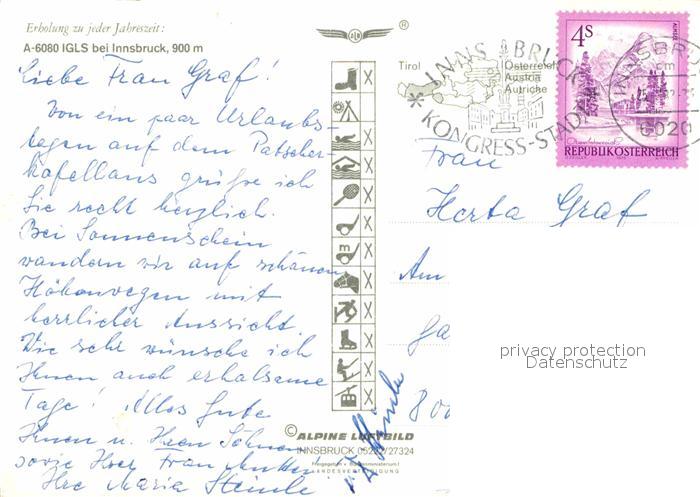 Erholung zu jeder Jahreszeit:
A-6080 IGLS bei Innsbruck, 900 m
Liebe Frau Graf!
Von ein paar Urlaubs-
tagen auf dem Patscher-
kofelhaus grüße ich
Sie recht herzlich.
Bei Sonnenschein
wandern wir auf schönen
Höhenwegen mit
herrlicher Aussicht.
Wie sehr wünsche ich
Ihnen auch erholsame
Tage! Alles Gute
Ihnen u. Ihren Söhnen
sowie Ihrer Frau
Ihre Maria Steinle
®
Tirol
Österreich
Austria
Autriche
INNSBRUCK
KONGRESS-STADT
4S
REPUBLIK ÖSTERREICH
INNSBRU
6020
Frau
Herta Graf
Am
Ga
800
privacy protection
Datenschutz
© ALPINE LUFTBILD
INNSBRUCK 05222/27324
Freigegeben v. Bundesministerium f.
LANDESVERTEIDIGUNG